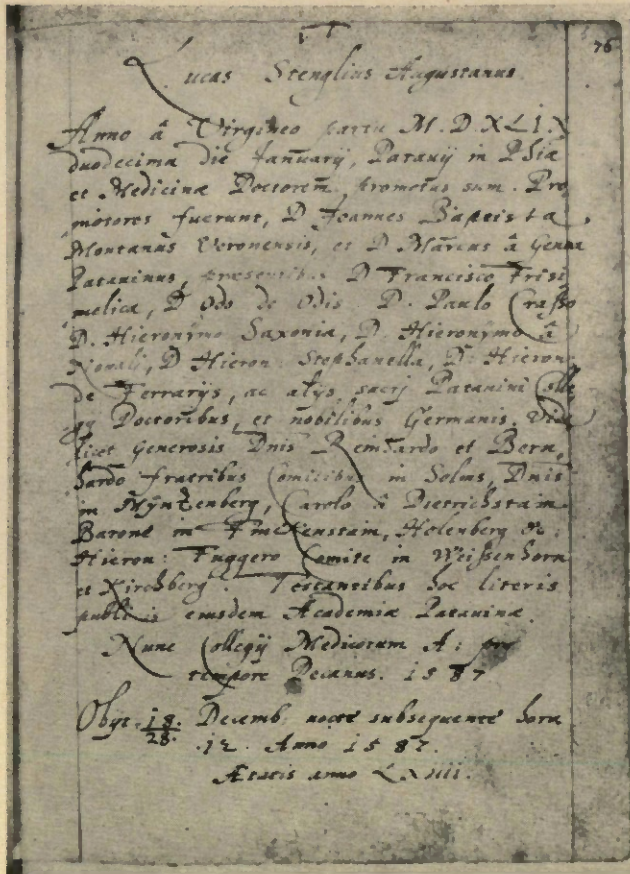 76
Lucas Stenglius Augustanus.
Anno â Virgineo partu M.D.XLIX
duodecima die Januarij, Patavij in Phiæ
et Medicinæ Doctorem promotus sum. Pro
motores fuerunt, D Joannes Baptista
Montanus Veronensis, et D Marcus â Genua
Patavinus, præsentibus D Francisco Frisi
melica, D Odo de Odis D. Paulo Crasso
D. Hieronymo Saxonia, D. Hieronymo â
D Hieron: Stephanella, D: Hieron:
de Ferrarijs, ac alijs, sacrj Patavini Colle
gij Doctoribus, et nobilibus Germanis. Vide
licet Generosis Dnis Reinhardo et Bern,
hardo fratribus Comitibus in Solms, Dnis
in Myntzenberg, Carolo â Dietrichstain
Barone in Finckenstain, Holenberg &c:
Hieron: Fuggero Comite in Weissenhorn
et Kirchberg. Testantibus hoc literis
publicis eiusdem Academiæ Patavinæ.
Nunc Collegij Medicorum A: pro
tempore Decanus. 1587
Obijt 18./28. Decemb: nocte subsequente hora
.12. Anno 1587.
Ætatis anno LXIIII.